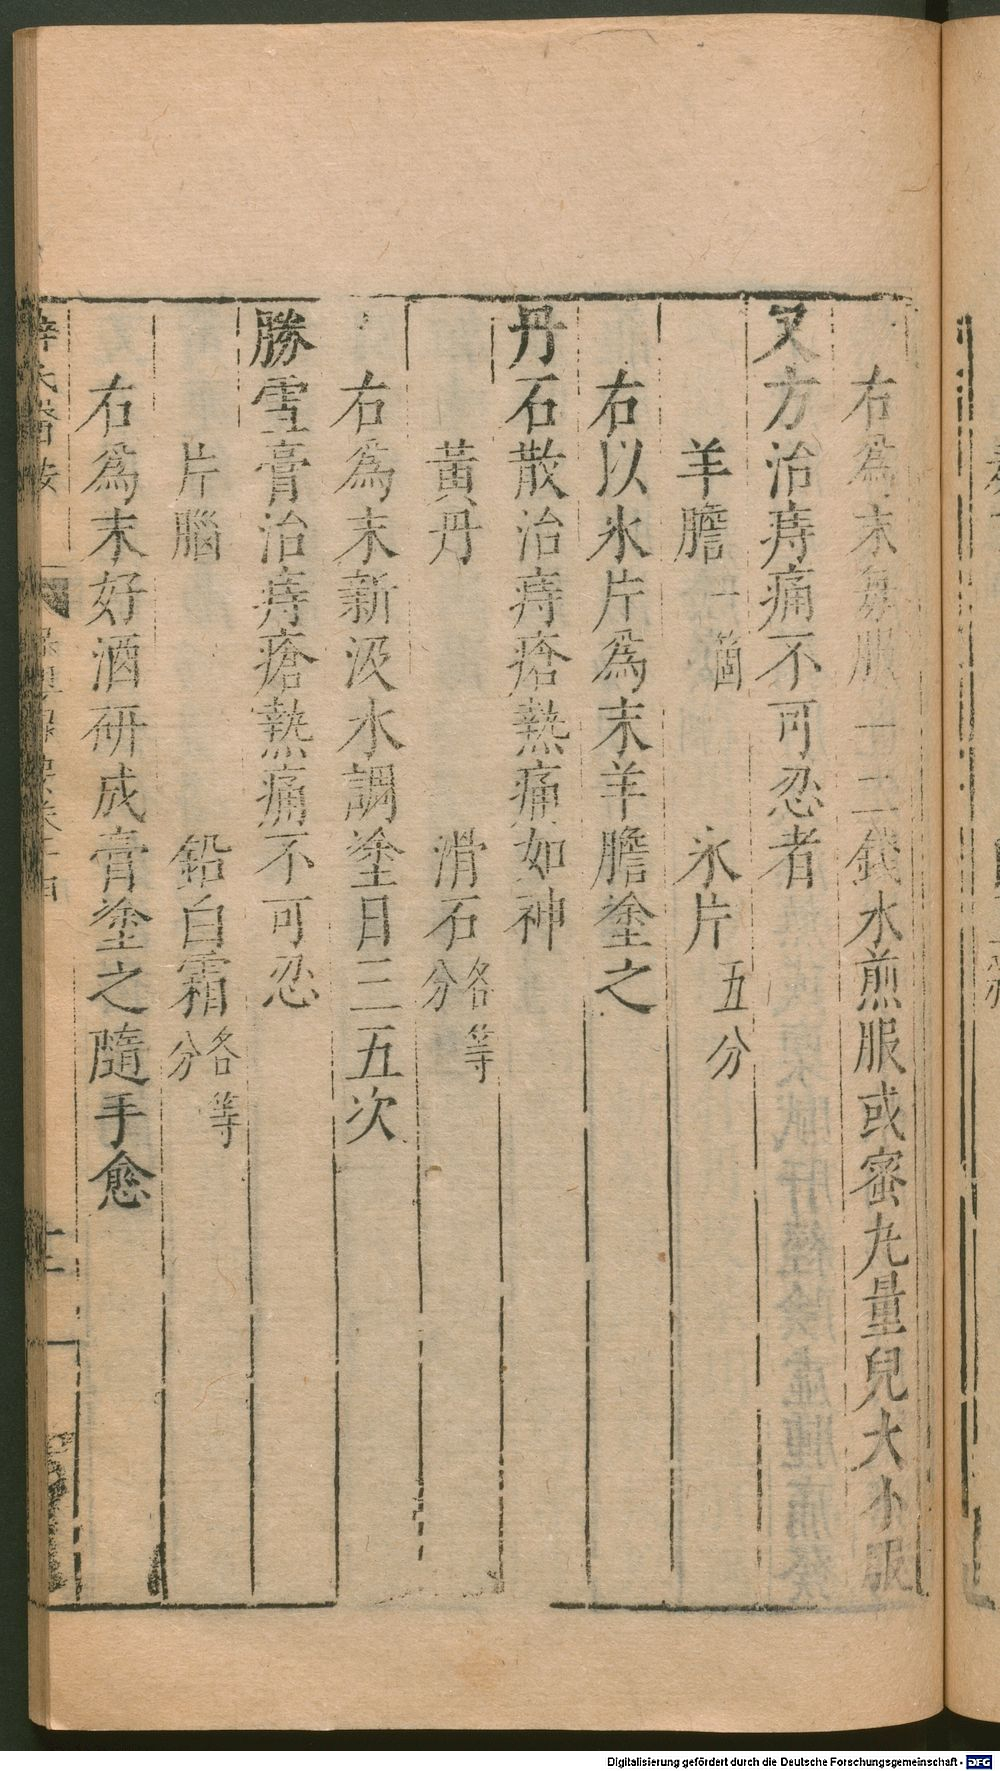 右為末每服一二錢水煎服或蜜丸量兒大小服
又方治痔痛不可忍者
羊膽一箇 氷片五分
右以氷片為末羊膽塗之
丹石散治痔瘡熱痛如神
黃丹 滑石各等分
右為末新汲水調塗日三五次
勝雪膏治痔瘡熱痛不可忍
片腦 鉛白霜各等分
右為末好酒研成膏塗之隨手愈
Digitalisierung gefördert durch die Deutsche Forschungsgemeinschaft - DFG